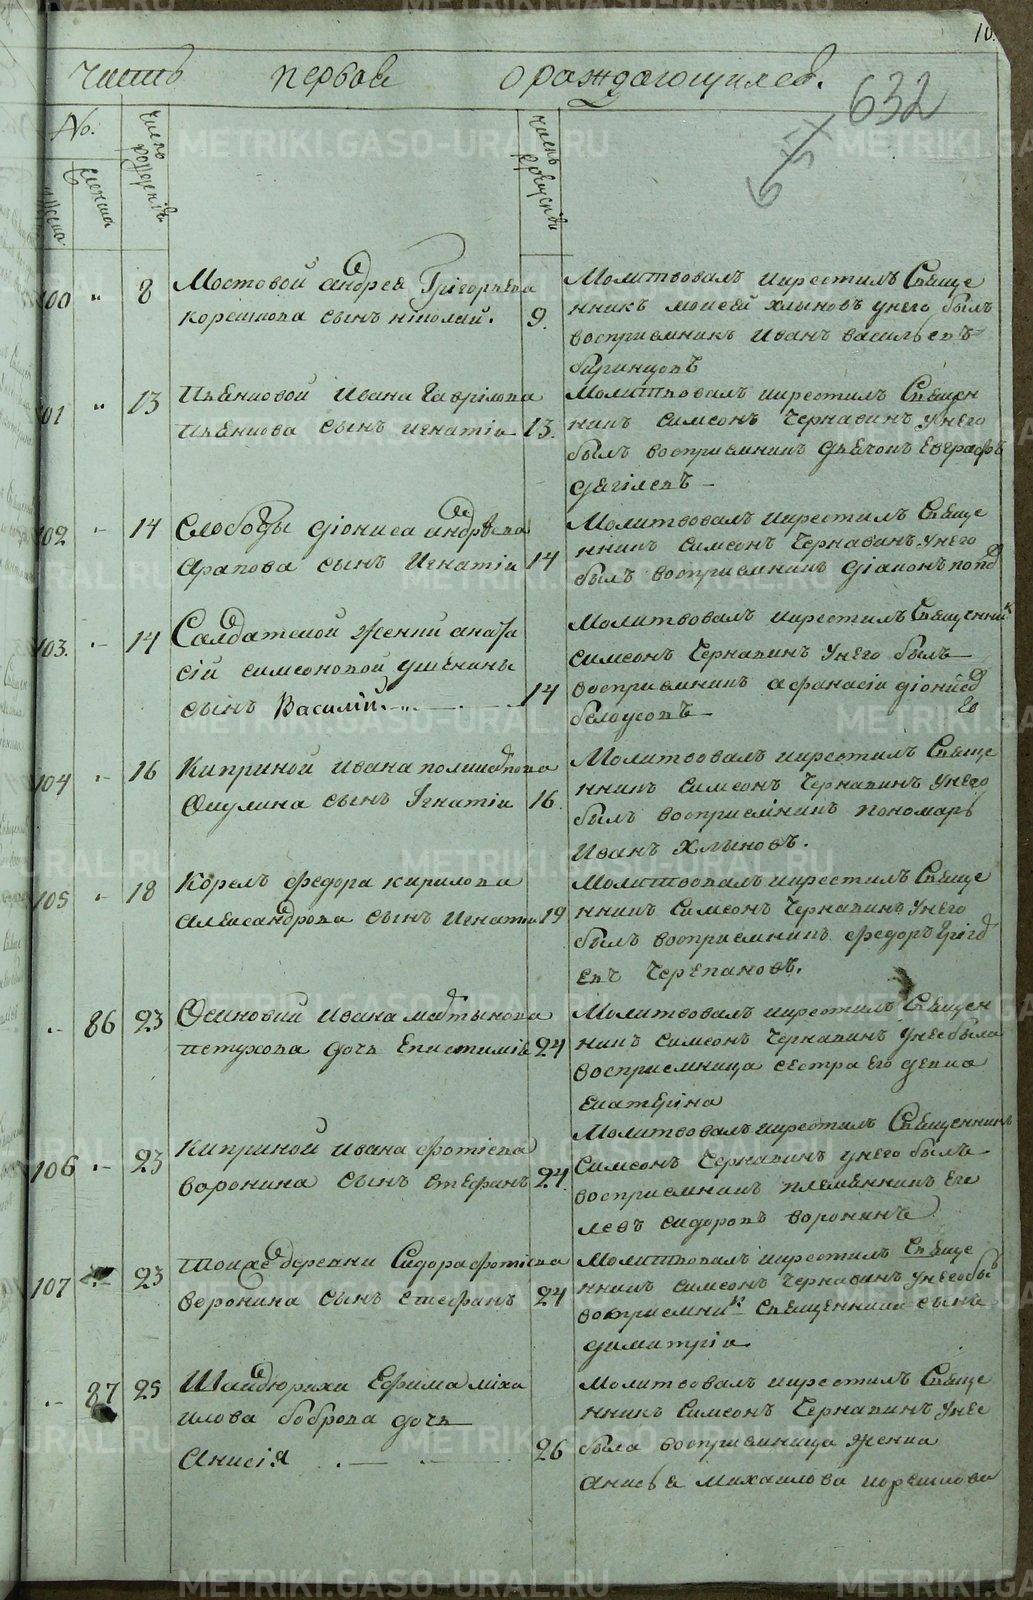 10.
часть первая о раждающихся.
632
No.
мужеска
женска
число рождения
число крещения
100 " 8 Мостовой андрея Григорьева
корешкова сынъ николай. 9.
Молитвовалъ икрестилъ Свяще
нникъ моисей хлыновъ унего былъ
восприемникъ Иванъ васильевъ
101 " 13 Ивана Гаврілова
сынъ игнатіи 13.
Молитвовалъ икрестилъ Священ
никъ симеонъ Чернавинъ унего
былъ восприемникъ дьячокъ Евграфъ
дягілевъ
102 14 Слободы діониса андрѣева
арапова сынъ Игнатіи 14
Молитвовалъ икрестилъ Свяще
нникъ симеонъ Чернавинъ унего
былъ восприемникъ діаконъ попо
103. 14 Салдатской женки анаста
сіи симеоновой ушенины
сынъ Василій. 14
Молитвовалъ икрестилъ Священник
симеонъ Чернавинъ унего былъ
восприемникъ афанасіи діонисье
въ белоусовъ
104 16 Киприной ивана поликарпова
Ошулина сынъ Ігнатіи 16.
Молитвовалъ икрестилъ Свяще
нникъ симеонъ Чернавинъ унего
былъ восприемникъ пономарь
Иванъ Хлыновъ.
105 18 Корелъ федора кирилова
Александрова сынъ Игнатіи 19
Молитвовалъ икрестилъ Свяще
нникъ Симеонъ Чернавинъ унего
былъ восприемникъ федоръ Григо
евъ Черепановъ.
86 23 Осиновки Ивана мартынова
петухова дочь Епистимія 24
Молитвовалъ икрестилъ Священ
никъ симеонъ Чернавинъ унее была
восприемница сестра его девка
екатеріна
106 23 Киприной ивана фотіева
воронина сынъ стефанъ 24.
Молитвовалъ икрестилъ Священникъ
Симеонъ Чернавинъ унего былъ
восприемникъ племенникъ его
левъ сидоровъ воронинъ
107 23 Тояже деревни Сидора фотіева
воронина сынъ стефанъ 24
Молитвовалъ икрестилъ Свяще
нникъ симеонъ Чернавинъ унего бы
восприемникъ священника сынъ
димитріи
87 25 Шандюрихи Ефима миха
илова боброва дочь
Анисія 26
Молитвовалъ икрестилъ Свяще
нникъ Симеонъ Чернавинъ унее
была восприемница женка
Анисья михаилова корешкова
METRIKI.GASO-URAL.RU